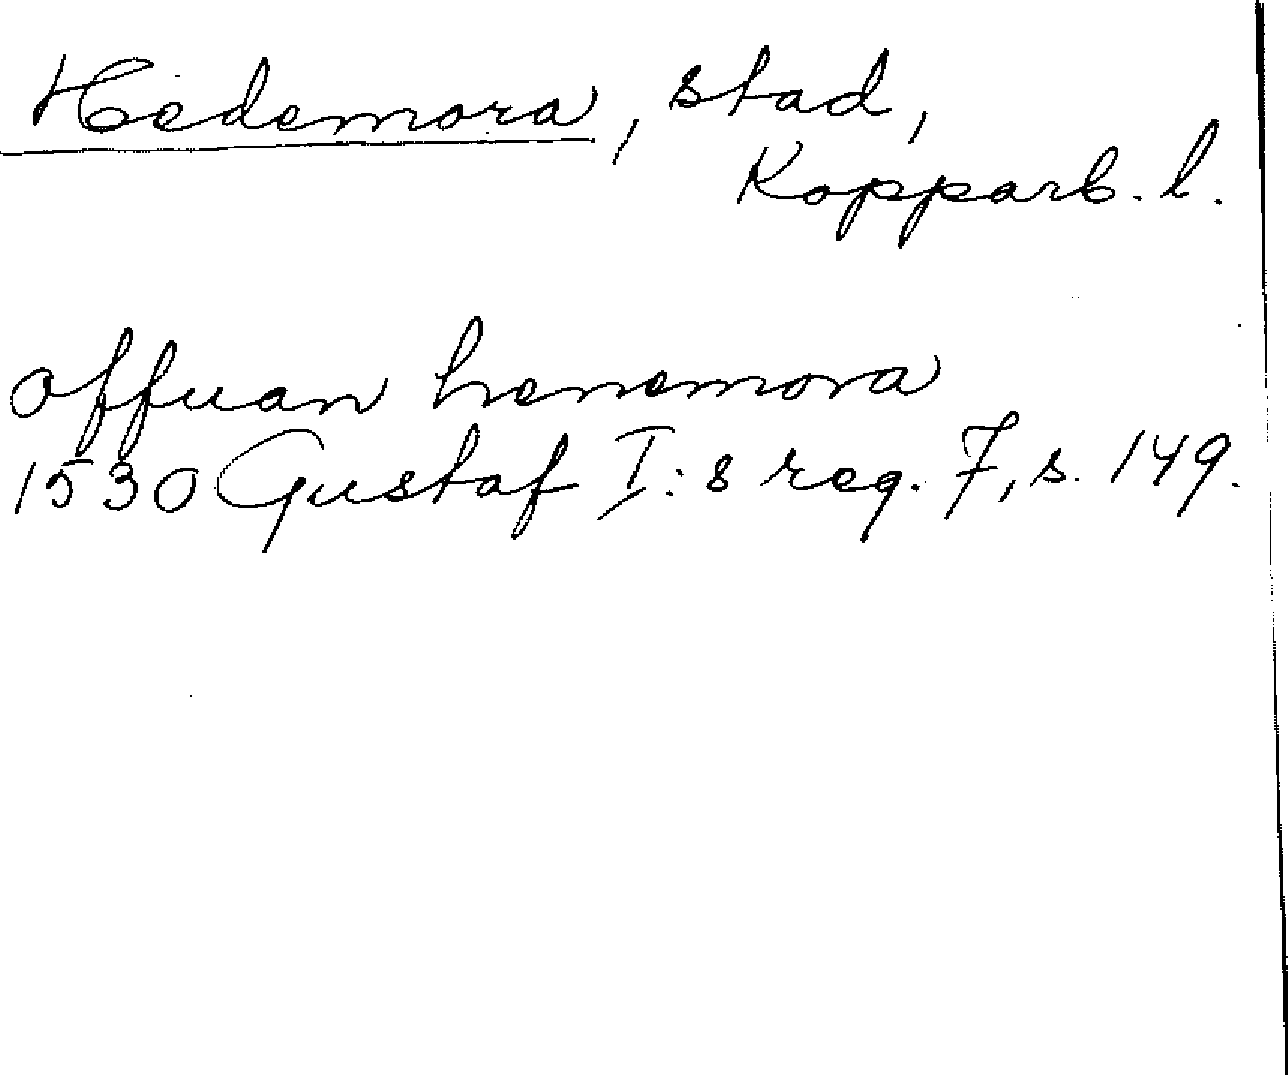 Hedemora, stad,
Kopparb. l.
offuan henemora
1530 Gustaf I:s reg. 7, s. 149.